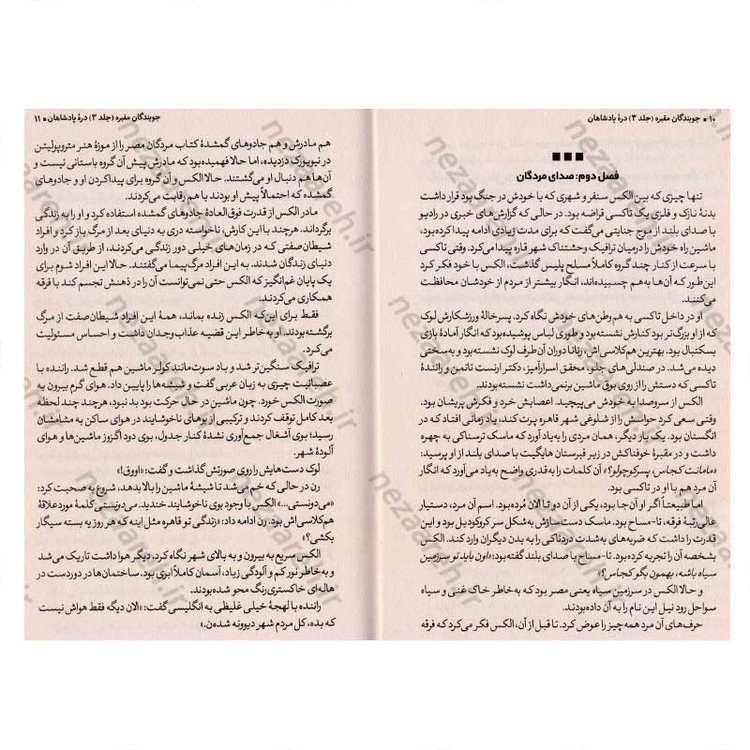 ۱۰ ■ جویندگان مقبره (جلد ۳) درهٔ پادشاهان
■ ■ ■
فصل دوم: صدای مردگان
تنها چیزی که بین الکس سنفر و شهری که با خودش در جنگ بود قرار داشت
بدنهٔ نازک و فلزی یک تاکسی قراضه بود. در حالی که گزارش‌های خبری در رادیو
با صدای بلند از موج جنایتی می‌گفت که برای مدت زیادی ادامه پیدا کرده بود،
ماشین راه خودش را در میان ترافیک وحشتناک شهر قاره پیدا می‌کرد. وقتی تاکسی
با سرعت از کنار چند گروه کاملاً مسلح پلیس گذشت، الکس با خود فکر کرد
این‌طور که آن‌ها به‌هم چسبیده‌اند، انگار بیشتر از مردم از خودشان محافظت
می‌کنند.
او در داخل تاکسی به هم‌وطن‌های خودش نگاه کرد. پسرخالهٔ ورزشکارش لوک
که از او بزرگ‌تر بود کنارش نشسته بود و طوری لباس پوشیده بود که انگار آمادهٔ بازی
بسکتبال بود. بهترین هم‌کلاسی‌اش، رناتا دوران آن طرف لوک نشسته بود و به‌سختی
دیده می‌شد. در صندلی‌های جلو، محقق اسرارآمیز، دکتر ارنست تاتمن و رانندهٔ
تاکسی که دستش را از روی بوق ماشین برنمی‌داشت نشسته بودند.
الکس از سروصدا به خودش می‌پیچید. اعصابش خرد و فکرش پریشان بود.
وقتی سعی کرد حواسش را از شلوغی شهر قاهره پرت کند، یاد زمانی افتاد که در
انگستان بود. یک بار دیگر، همان مردی را به‌یاد آورد که ماسک ترسناکی به چهره
داشت و در مقبرهٔ خوفناکش در زیر قبرستان هایگیت با صدای بلند از او پرسید:
«مامانت کجاس، پسرکوچولو؟» آن کلمات را به‌قدری واضح به‌یاد می‌آورد که انگار
آن مرد هم با او در تاکسی بود.
اما طبیعتاً اگر او آن‌جا بود، یکی از آن دو تا الان مرده بود. اسم آن مرد، دستیار
عالی‌رتبهٔ فرقه، تا-مساح بود. ماسک دست‌سازش به‌شکل سر کروکودیل بود و این
قدرت را داشت که ضربه‌های به‌شدت دردناکی را به بدن دیگران وارد کند. الکس
بشخصه آن را تجربه کرده بود. تا-مساح با صدای بلند گفته بود: «اون باید تو سرزمین
سیاه باشه، بهمون بگو کجاس؟»
و حالا الکس در سرزمین سیاه یعنی مصر بود که به‌خاطر خاک غنی و سیاه
سواحل رود نیل این نام را به آن داده بودند.
حرف‌های آن مرد همه چیز را عوض کرد. تا قبل از آن، الکس فکر می‌کرد که فرقه
جویندگان مقبره (جلد ۳) درهٔ پادشاهان ■ ۱۱
هم مادرش و هم جادوهای گمشدهٔ کتاب مردگان مصر را از موزهٔ هنر متروپولیتن
در نیویورک دزدیده، اما حالا فهمیده بود که مادرش پیش آن گروه باستانی نیست و
آن‌ها هم دنبال او می‌گشتند. حالا الکس و آن گروه برای پیداکردن او و جادوهای
گمشده که احتمالاً پیش او بودند با هم رقابت می‌کردند.
مادر الکس از قدرت فوق‌العادهٔ جادوهای گمشده استفاده کرد و او را به زندگی
برگرداند. هرچند با این کارش، ناخواسته دری به دنیای بعد از مرگ باز کرد و افراد
شیطان‌صفتی که در زمان‌های خیلی دور زندگی می‌کردند، از طریق آن در وارد
دنیای زندگان شدند. به این افراد مرگ‌پیما می‌گفتند. حالا این افراد شوم برای
یک پایان غم‌انگیز که الکس حتی نمی‌توانست آن را در ذهنش تجسم کند با فرقه
همکاری می‌کردند.
فقط برای این‌که الکس زنده بماند، همهٔ این افراد شیطان‌صفت از مرگ
برگشته بودند. او به‌خاطر این قضیه عذاب‌وجدان داشت و احساس مسئولیت
می‌کرد.
ترافیک سنگین‌تر شد و باد سوت‌مانند کولر ماشین هم قطع شد. راننده با
عصبانیت چیزی به زبان عربی گفت و شیشه‌ها را پایین داد. هوای گرم بیرون به
صورت الکس خورد. چون ماشین در حال حرکت بود بد نبود، هرچند چند لحظه
بعد کامل توقف کردند و ترکیبی از بوهای ناخوشایند در هوای ساکن به مشامشان
رسید؛ بوی آشغال جمع‌آوری نشدهٔ کنار جدول، بوی دود اگزوز ماشین‌ها و هوای
آلودهٔ شهر.
لوک دست‌هایش را روی صورتش گذاشت و گفت: «اووق!»
رن در حالی که خم می‌شد تا شیشهٔ ماشین را بالا بدهد، شروع به صحبت کرد:
«می‌دونستی...» الکس با وجود بوی ناخوشایند خندید. می‌دونستی کلمهٔ موردعلاقهٔ
هم‌کلاسی‌اش بود. رن ادامه داد: «زندگی تو قاهره مثل اینه که هر روز یه بسته سیگار
بکشی؟»
الکس سریع به بیرون و به بالای شهر نگاه کرد. دیگر هوا داشت تاریک می‌شد
و به خاطر نور کم و آلودگی زیاد، آسمان کاملاً ابری بود. ساختمان‌ها در دوردست در
هاله‌ای خاکستری‌رنگ محو شده بودند.
راننده با لهجهٔ خیلی غلیظی به انگلیسی گفت: «الان دیگه فقط هواش نیست
که بده، کل مردم شهر دیوونه شده‌ن.»
nezaaneh.ir